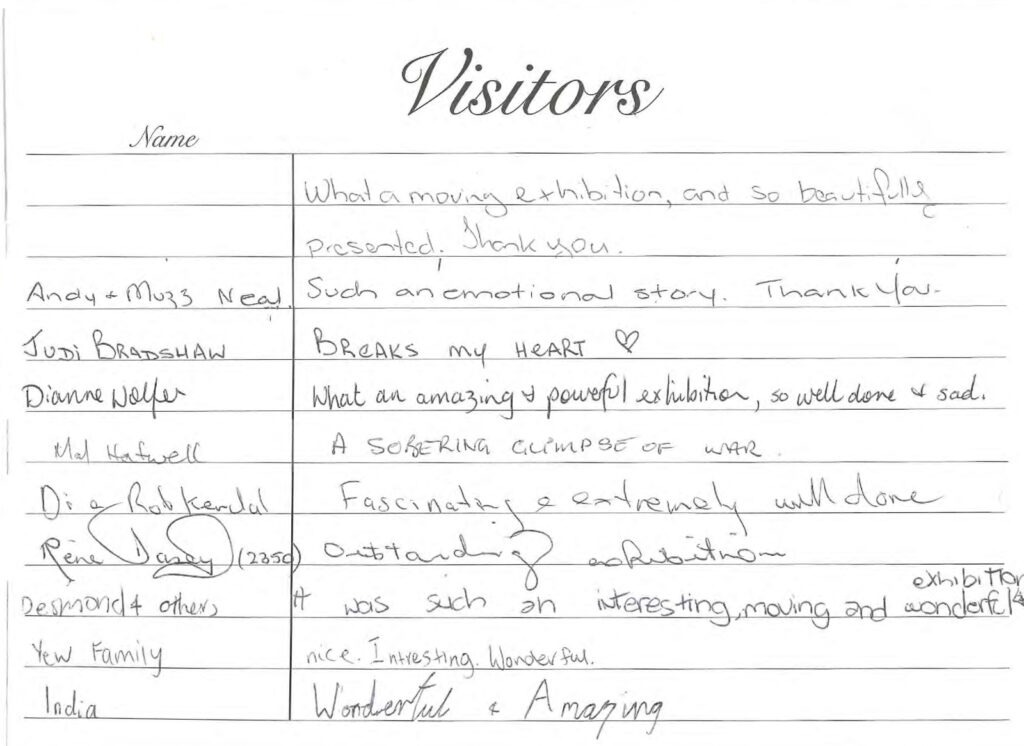 Visitors
Name
What a moving exhibition, and so beautifully
presented. Thank you.
Andy + Muzz Neal. Such an emotional story. Thank You.
JUDI BRADSHAW BREAKS my HEART ♡
Dianne Wolfer What an amazing & powerful exhibition, so well done & sad.
Mal Hatwell A SOBERING GLIMPSE OF WAR.
Di & Rob Kendal Fascinating & extremely well done
Rene (2350) Outstanding exhibition
exhibition
Desmond & others It was such an interesting, moving and wonderful
Yew Family nice. Intresting. Wonderful.
India Wonderful & Amazing